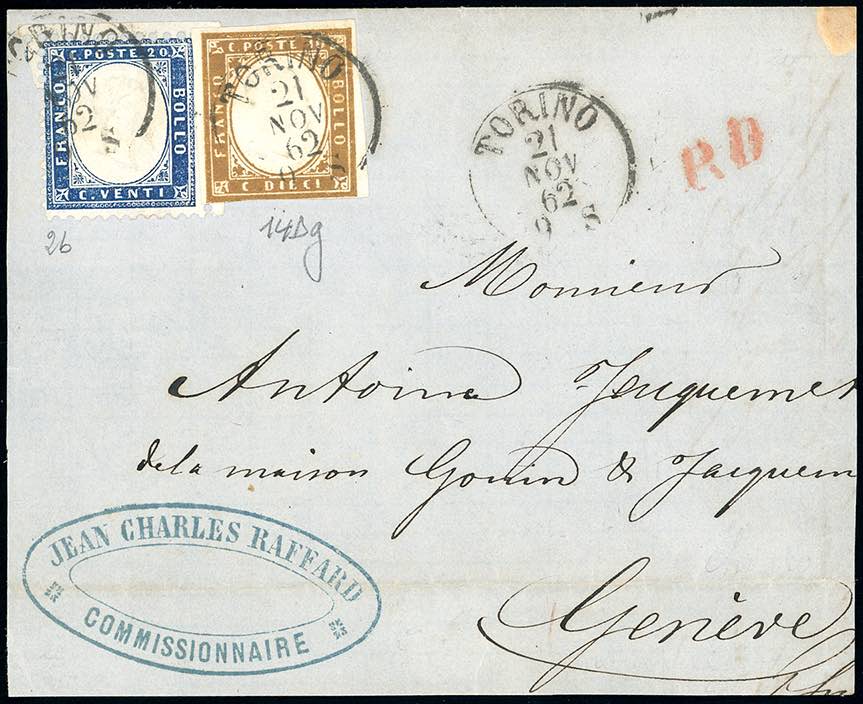 TORINO
NOV
62
C. POSTE 20
FRANCO
BOLLO
C. VENTI
C. POSTE 10
FRANCO
BOLLO
C. DIECI
TORINO
21
NOV
62
TORINO
21
NOV
62
S
PD
26
14Dg
Monsieur
Antoine Jacquemet
de la maison Gonin & Jacquem
Genève
JEAN CHARLES RAFFARD
COMMISSIONNAIRE